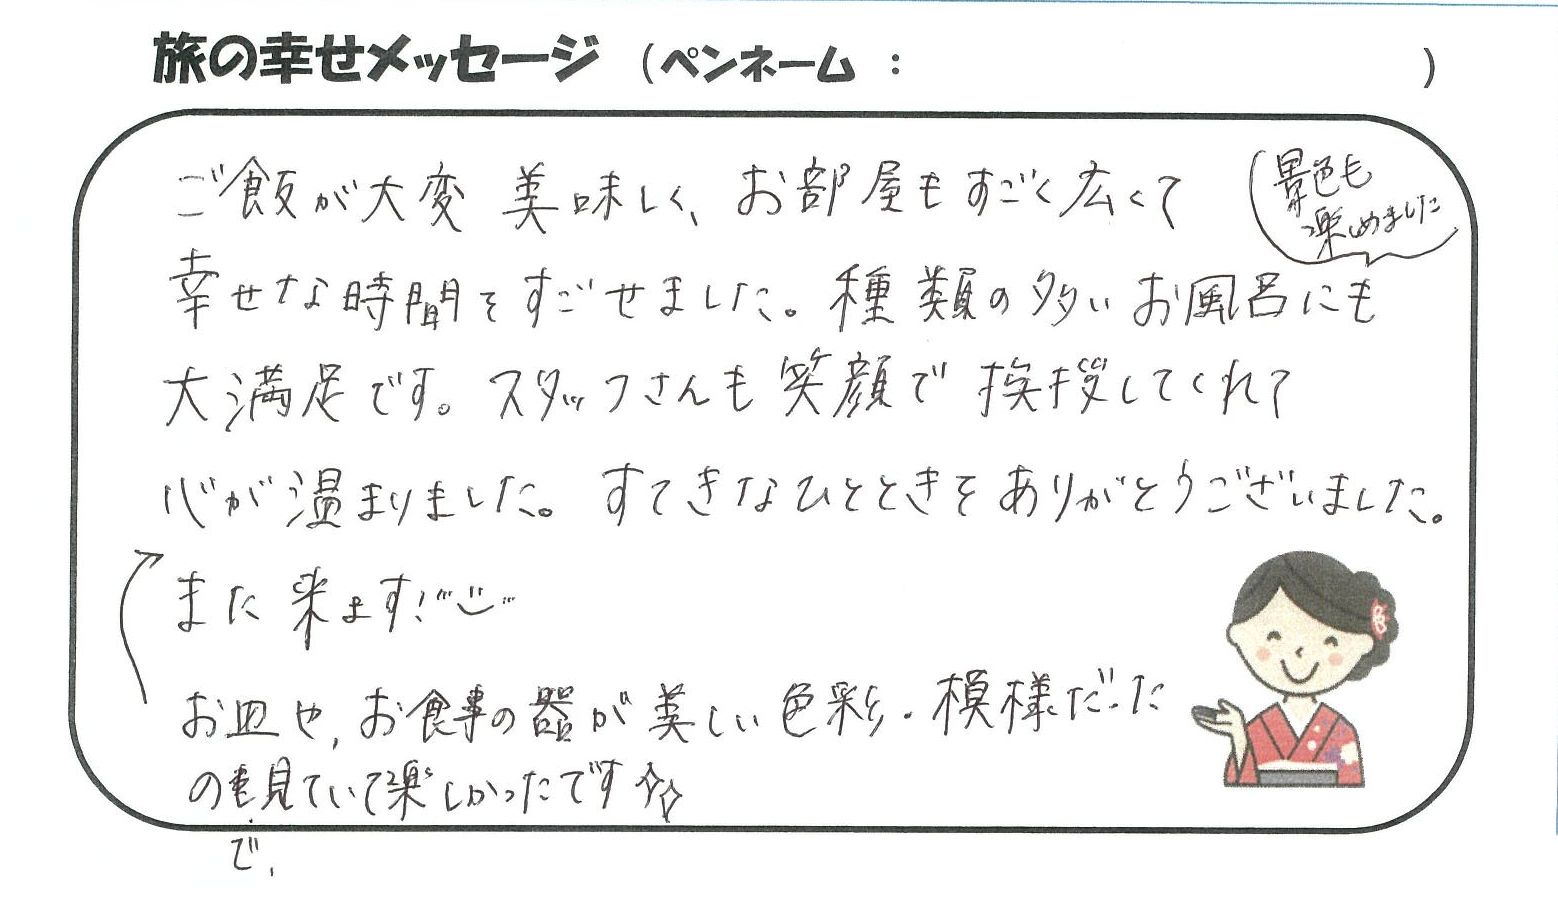 旅の幸せメッセージ （ペンネーム ： ）
ご飯が大変 美味しく、お部屋もすごく広くて
景色も
楽しめました
幸せな時間をすごせました。種類の多いお風呂にも
大満足です。スタッフさんも笑顔で挨拶してくれて
心が温まりました。すてきなひとときをありがとうございました。
また来ます!
お皿や、お食事の器が美しい色彩・模様だった
の見ていて楽しかったです☆☆
で、